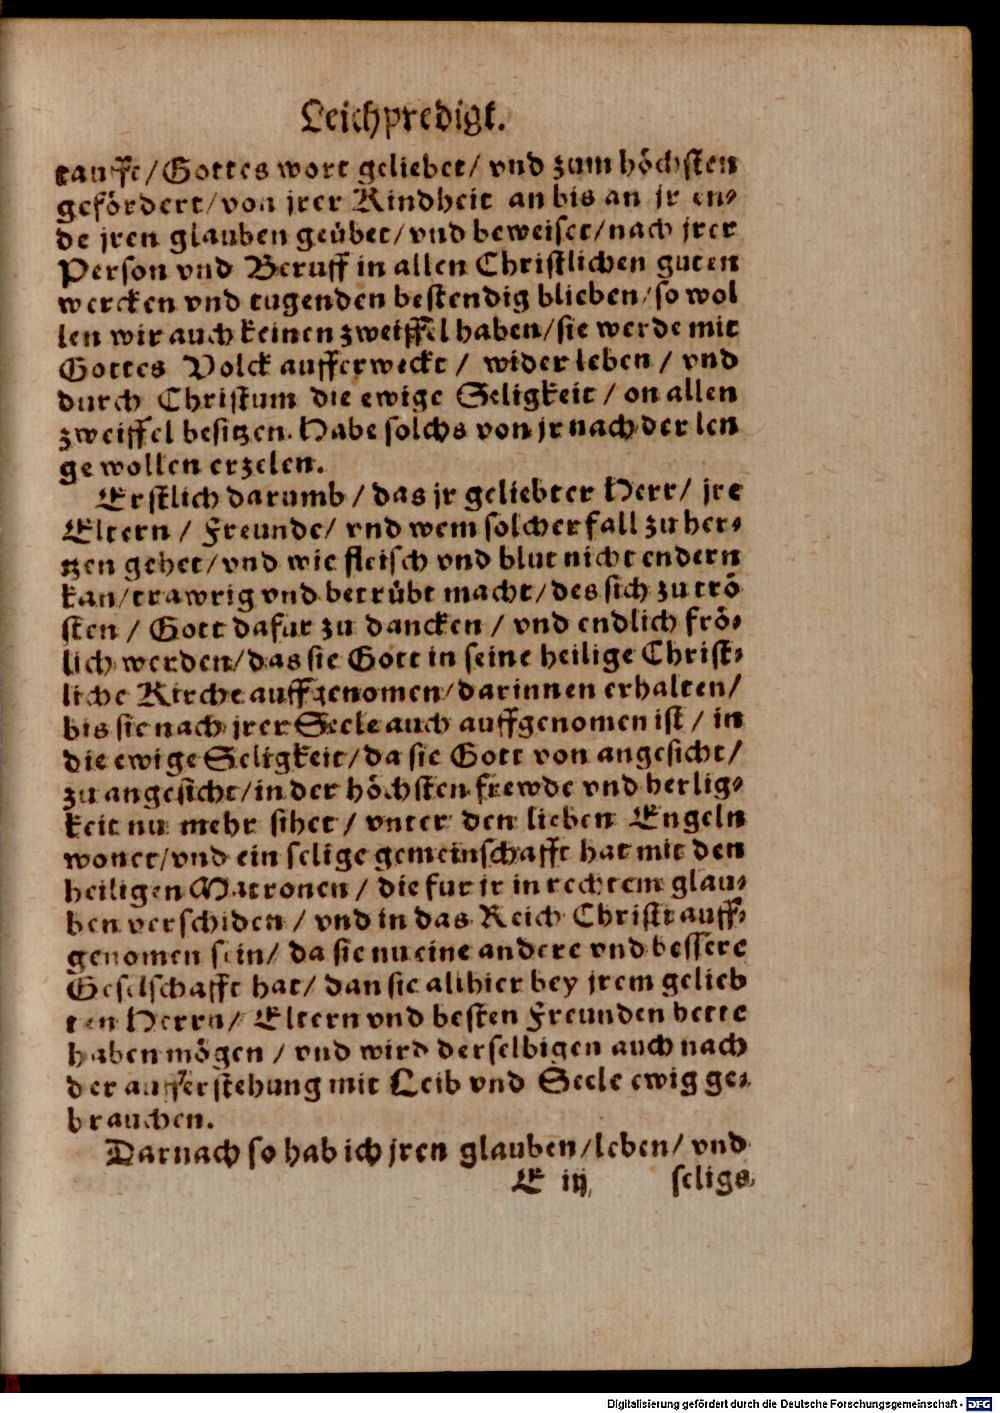 Leichpredigt.
taufft/Gottes wort geliebet/ vnd zum höchsten
gefördert/von jrer Kindheit an bis an jr en⸗
de jren glauben geübet/vnd beweiset/nach jrer
Person vnd Beruff in allen Christlichen guten
wercken vnd tugenden bestendig blieben/so wol
len wir auch keinen zweiffel haben/sie werde mit
Gottes Volck aufferweckt / wider leben / vnd
durch Christum die ewige Seligkeit / on allen
zweiffel besitzen. Habe solchs von jr nach der len
ge wollen erzelen.
Erstlich darumb / das jr geliebter Herr/ jre
Eltern / Freunde/ vnd wem solcher fall zu her⸗
tzen gehet/vnd wie fleisch vnd blut nicht endern
kan/trawrig vnd betrübt macht/des sich zu trö
sten / Gott dafur zu dancken / vnd endlich frö⸗
lich werden/das sie Gott in seine heilige Christ⸗
liche Kirche auffgenomen/darinnen erhalten/
bis sie nach jrer Seele auch auffgenomen ist / in
die ewige Seligkeit/da sie Gott von angesicht/
zu angesicht/in der höchsten frewde vnd herlig⸗
keit nu mehr sihet / vnter den lieben Engeln
wonet/vnd ein selige gemeinschafft hat mit den
heiligen Matronen / die fur jr in rechtem glau⸗
ben verschiden / vnd in das Reich Christi auff⸗
genomen sein/ da sie nu eine andere vnd bessere
Geselschafft hat/ dan sie alhier bey jrem gelieb
ten Herrn/ Eltern vnd besten Freunden hette
haben mögen / vnd wird derselbigen auch nach
der aufferstehung mit Leib vnd Seele ewig ge⸗
brauchen.
Darnach so hab ich jren glauben/leben/ vnd
E iij seligs
Digitalisierung gefördert durch die Deutsche Forschungsgemeinschaft - DFG